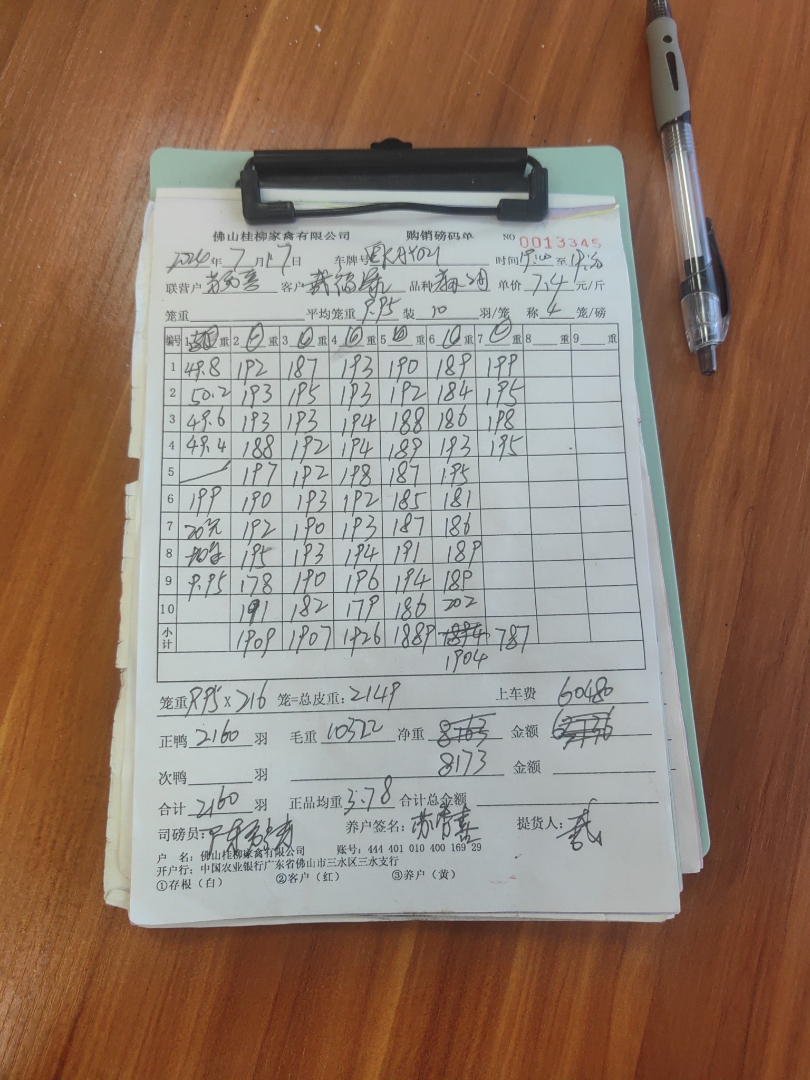 佛山桂柳家禽有限公司 购销磅码单 NO 0013345
2026年7月17日 车牌号 时间 至
联营户 客户 品种 单价 7.4 元/斤
笼重 平均笼重 9.95 装 10 羽/笼 称 4 笼/磅
编号 1 重 2 重 3 重 4 重 5 重 6 重 7 重 8 重 9 重
1 49.8 192 187 193 190 189 199
2 50.2 193 195 193 192 184 195
3 49.6 193 193 194 188 186 198
4 49.4 188 192 194 189 193 195
5 197 192 198 187 195
6 199 190 193 192 185 181
7 20元 192 190 193 187 186
8 195 193 194 191 189
9 9.95 178 190 196 194 189
10 191 182 179 186 202
小计 1909 1907 1926 1889 1894 787
1904
笼重 9.95 X 216 笼=总皮重: 2149 上车费 60480
正鸭 2160 羽 毛重 10322 净重 金额
次鸭 羽 8173 金额
合计 2160 羽 正品均重 3.78 合计总金额
司磅员: 养户签名: 提货人:
户 名: 佛山桂柳家禽有限公司 账号: 444 401 010 400 169 29
开户行: 中国农业银行广东省佛山市三水区三水支行
①存根(白) ②客户(红) ③养户(黄)